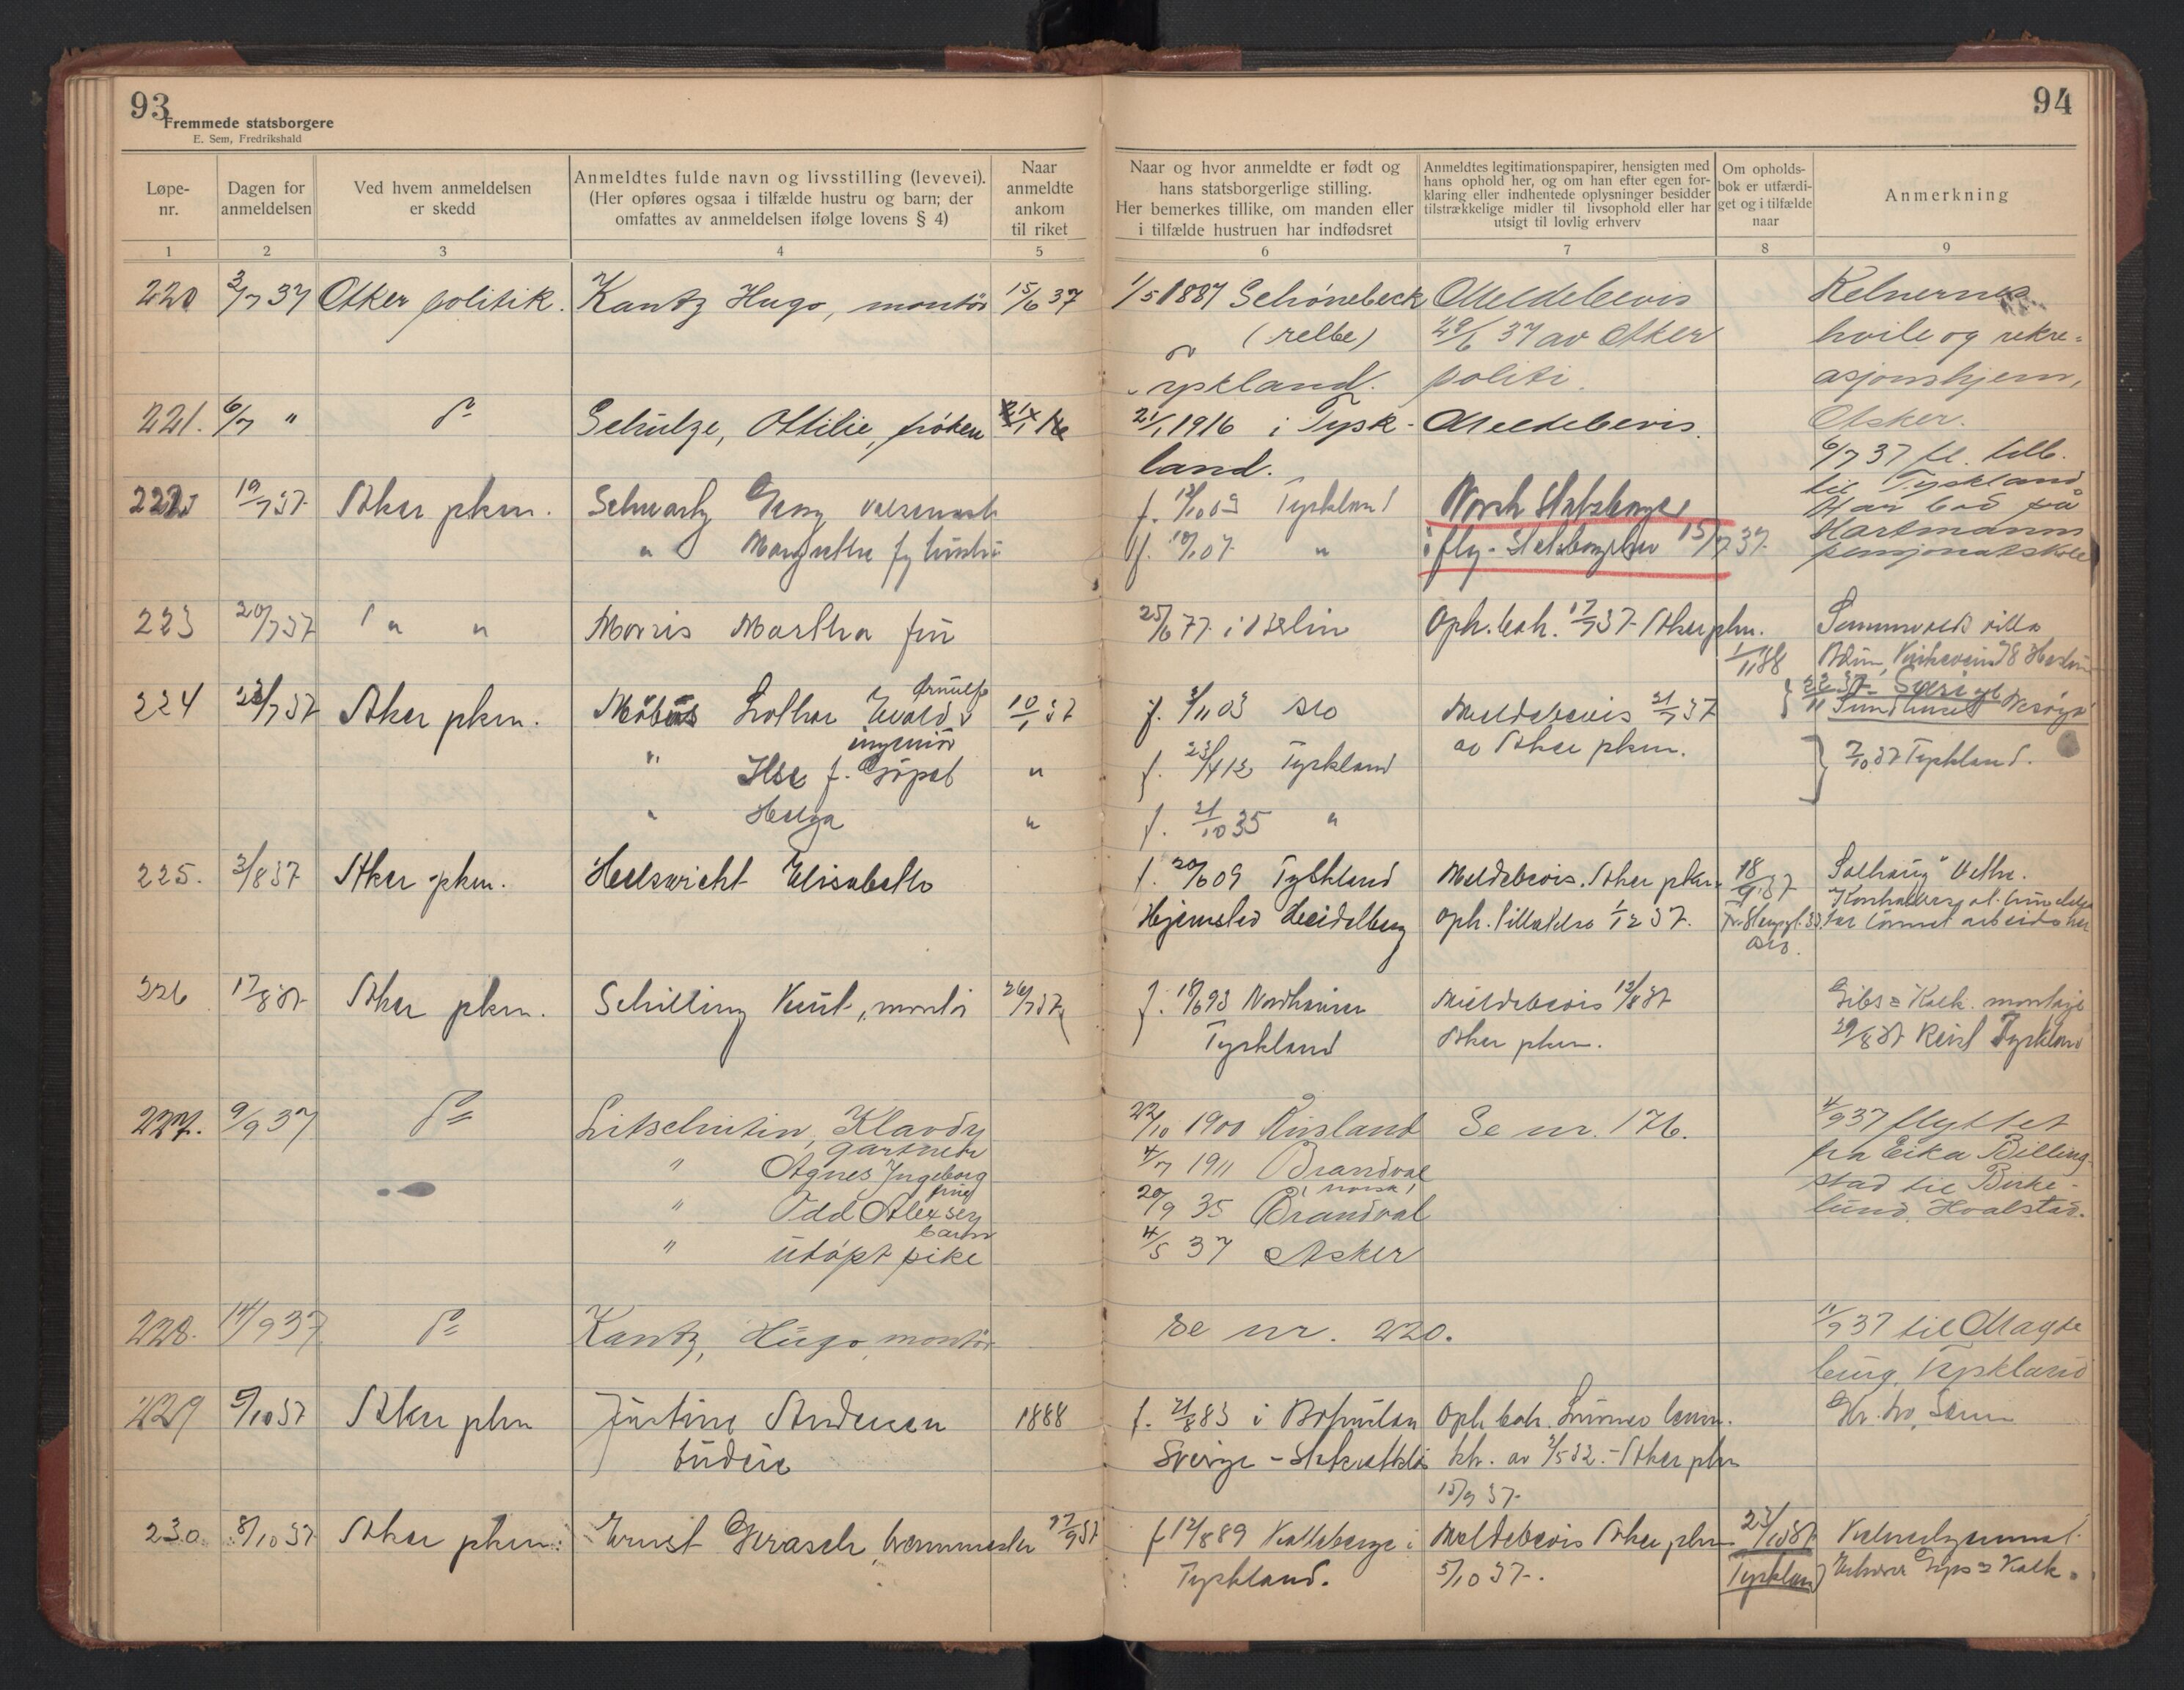 93
Fremmede statsborgere
E. Sem, Fredrikshald
Løpe-
nr.
Dagen for
anmeldelsen
Ved hvem anmeldelsen
er skedd
Anmeldtes fulde navn og livsstilling (levevei).
(Her opføres ogsaa i tilfælde hustru og barn; der
omfattes av anmeldelsen ifølge lovens § 4)
Naar
anmeldte
ankom
til riket
1 2 3 4 5
220 3/7 37 Asker politik. Kantz Hugo, montør 15/6 37
221. 6/7 " do Schulze, Ottilie, frøken
222 19/7 37 Asker pkm. Schwartz Georg
" Margrethe
223 20/7 37 " " Morris Martha fru
224 23/7 37 Asker pkm. Möbius Lothar Ewald Arnulf 10/1 37
ingeniør
" Ilse f. Göpel "
" Helga "
225. 3/8 37 Asker pkm. Helswicht Elisabeth
226 17/8 37 Asker pkm. Schilling Kurt, montør 26/7 37
227. 9/9 37 do Litschutin, Klavdy
gartner
" Agnes Ingeborg
frue
" Odd Alexsey
barn
" utøpt pike
228. 14/9 37 do Kantz, Hugo, montør
229 5/10 37 Asker pkm Justine Andersen 1888
budeie
230. 8/10 37 Asker pkm. Ernst Gerasch, 27/9 37
94
Naar og hvor anmeldte er født og
hans statsborgerlige stilling.
Her bemerkes tillike, om manden eller
i tilfælde hustruen har indfødsret
Anmeldtes legitimationspapirer, hensigten med
hans ophold her, og om han efter egen for-
klaring eller indhentede oplysninger besidder
tilstrækkelige midler til livsophold eller har
utsigt til lovlig erhverv
Om opholds-
bok er utfærdi-
get og i tilfælde
naar
Anmerkning
6 7 8 9
1/5 1887 Schönebeck Meldebevis Kelnernes
(Elbe) 29/6 37 av Asker hvile og rekre-
Tyskland. politi. asjonshjem,
21/1 1916 i Tysk- Meldebevis. Asker.
land. 6/7 37 fl. tilb.
til Tyskland
Har bod på
Hartmanns
pensjonatskole
f. 12/10 09 Tyskland Norsk Statsborger
f. 10/1 07 " i flg. Statsborgerbrev 15/7 37.
25/6 77 i Berlin Oph. bok. 17/7 37 Asker pkm.
1/1 38
f. 3/11 03 Oslo Meldebevis 21/7 37
av Asker pkm.
f. 23/4 12 Tyskland 7/10 37 Tyskland.
f. 21/10 35 "
f. 20/6 09 Tyskland Meldebevis. Asker pkm. 18/9 37 Solhaug
Hjemsted Heidelberg Oph. tillatelse 1/12 37.
f. 18/6 93 Nordhausen Meldebevis 12/8 37 Gibs & Kalk. montasje
Tyskland Asker pkm. 29/8 37 Reist Tyskland
22/10 1900 Rusland Se nr. 176. 4/9 37 flyttet
4/7 1911 Brandval fra Eika Billing-
(norsk) stad til Birke-
20/9 35 Brandval lund, Hvalstad.
4/5 37 Asker
Se nr. 220. 11/9 37 til Magde
burg, Tyskland
f. 21/8 83 i Bohuslän Oph. bok.
Sverige - av 2/5 32. - Asker pkm
15/9 37.
f 12/8 89 i Meldebevis Asker pkm 23/10 37
Tyskland. 5/10 37. Tyskland Gips & Kalk.